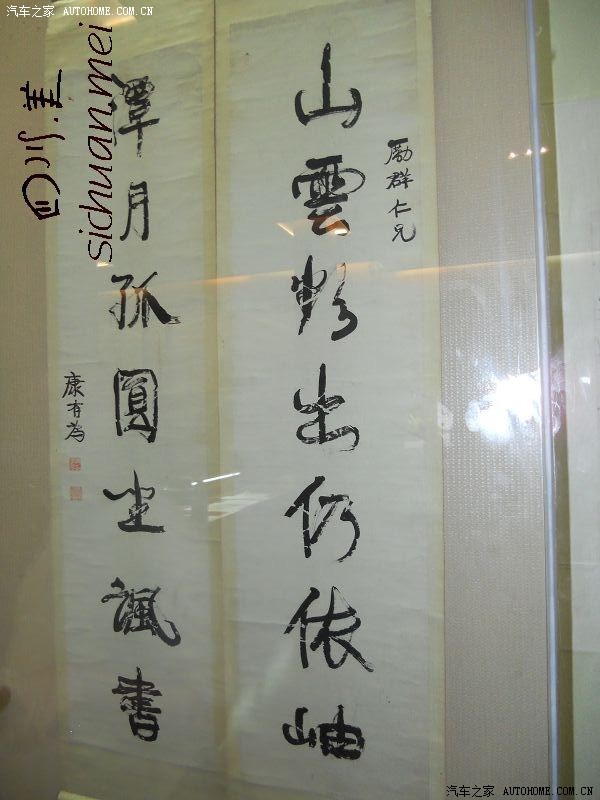 汽车之家 AUTOHOME.COM.CN
四川.美
sichuan.mei
励群仁兄
山雲彩出仍依岫
潭月孤圓坐諷書
康有為
汽车之家 AUTOHOME.COM.CN